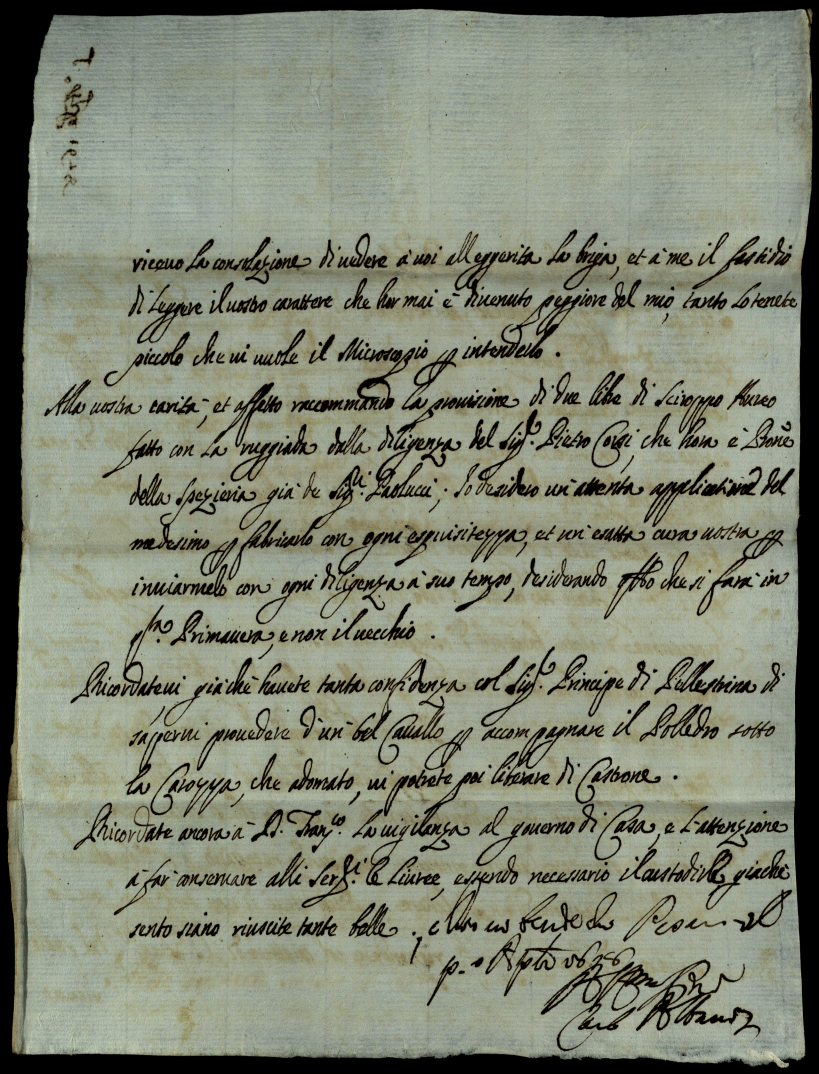 riceuo la consolazione di uedere à uoi alleggerita la briga, et à me il fastidio
di leggere il uostro carattere che hormai è diuenuto peggiore del mio, tanto lo tenete
piccolo che ui uuole il Microscopio p intenderlo.
Alla uostra carità, et affetto raccommando la prouisione di due libre di Sciroppo Aureo
fatto con la ruggiada dalla diligenza del Sig.r Pietro Corsi, che hora è Prone
della Spezieria già de Sig.ri Paolucci; Io desidero un'attenta applicatione del
medesimo p fabricarlo con ogni esquisitezza, et un'esatta cura uostra p
inuiarmelo con ogni diligenza à suo tempo, desiderando che si farà in
Primauera, e non il uecchio.
Ricordateui già che hauete tanta confidenza col Sig.r Principe di Pellestrina di
saperui prouedere d'un bel Cauallo p accompagnare il Polledro sotto
la Carozza, che adomato, ui potrete poi liberare di Castrone.
Ricordate ancora à D. Fran.co la uigilanza al gouerno di Casa, e l'attenzione
à far conseruare alli Ser.ri le Liuree, essendo necessario il custodirle, giache
sento siano riuscite tante belle;
Carlo Albani